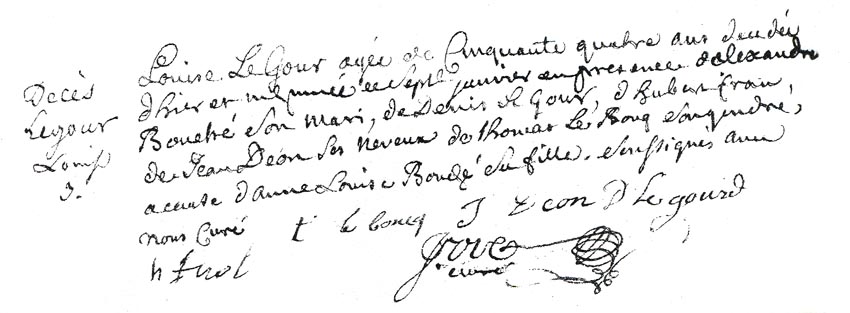 Decès
Legour
Louise
3.
Louise LeGour agée de Cinquante quatre ans decedée
d'hier et inhumée ce sept janvier en presence d'alexandre
Bouché son mari, de Denis le Gour, d'hubert
de Jean Deon ses neveux de thomas Le Bocq son gendre,
a cause d'anne Louise Bouché sa fille. soussignés avec
nous Curé
t le bocq J Deon D Le gourd
h
curé